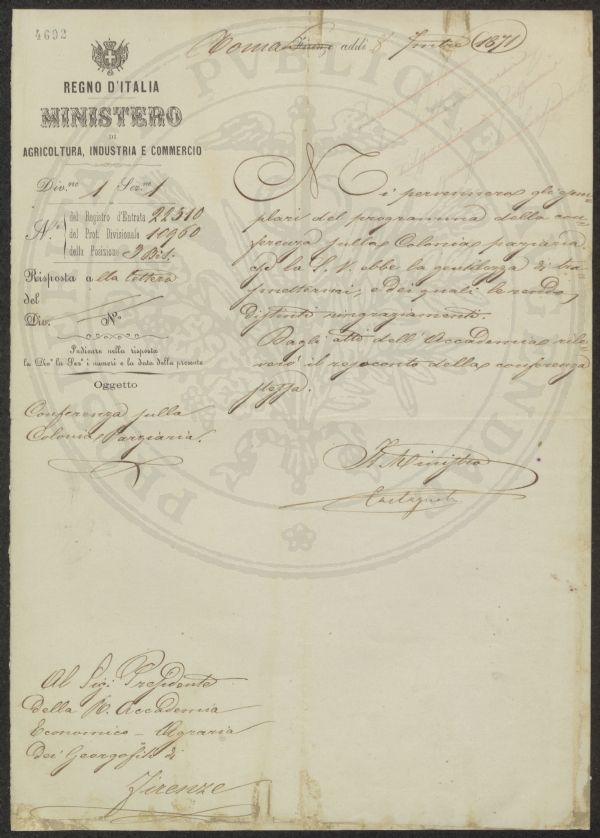 4692
Roma Firenze addì 8 7mbre 1871
REGNO D'ITALIA
MINISTERO
DI
AGRICOLTURA, INDUSTRIA E COMMERCIO
Div.ne 1 Sez.ne 1
N.° del Registro d'Entrata 22510
del Prot. Divisionale 10960
della Posizione 2 Bis.
Risposta alla lettera
del
Div. N°
Indicare nella risposta
la Div.e la Sez.e i numeri e la data della presente
Oggetto
Conferenza sulla
Colonia Parziaria.
Mi pervennero gli esem=
plari del programma della con=
ferenza sulla Colonia parziaria
che la S. V. ebbe la gentilezza di tra=
smettermi, e dei quali le rendo
distinti ringraziamenti.
Dagli atti dell'Accademia rile=
verò il resoconto della conferenza
stessa.
Il Ministro
Castagnola
Al Sig. Presidente
della R. Accademia
Economico-Agraria
dei Georgofili di
Firenze